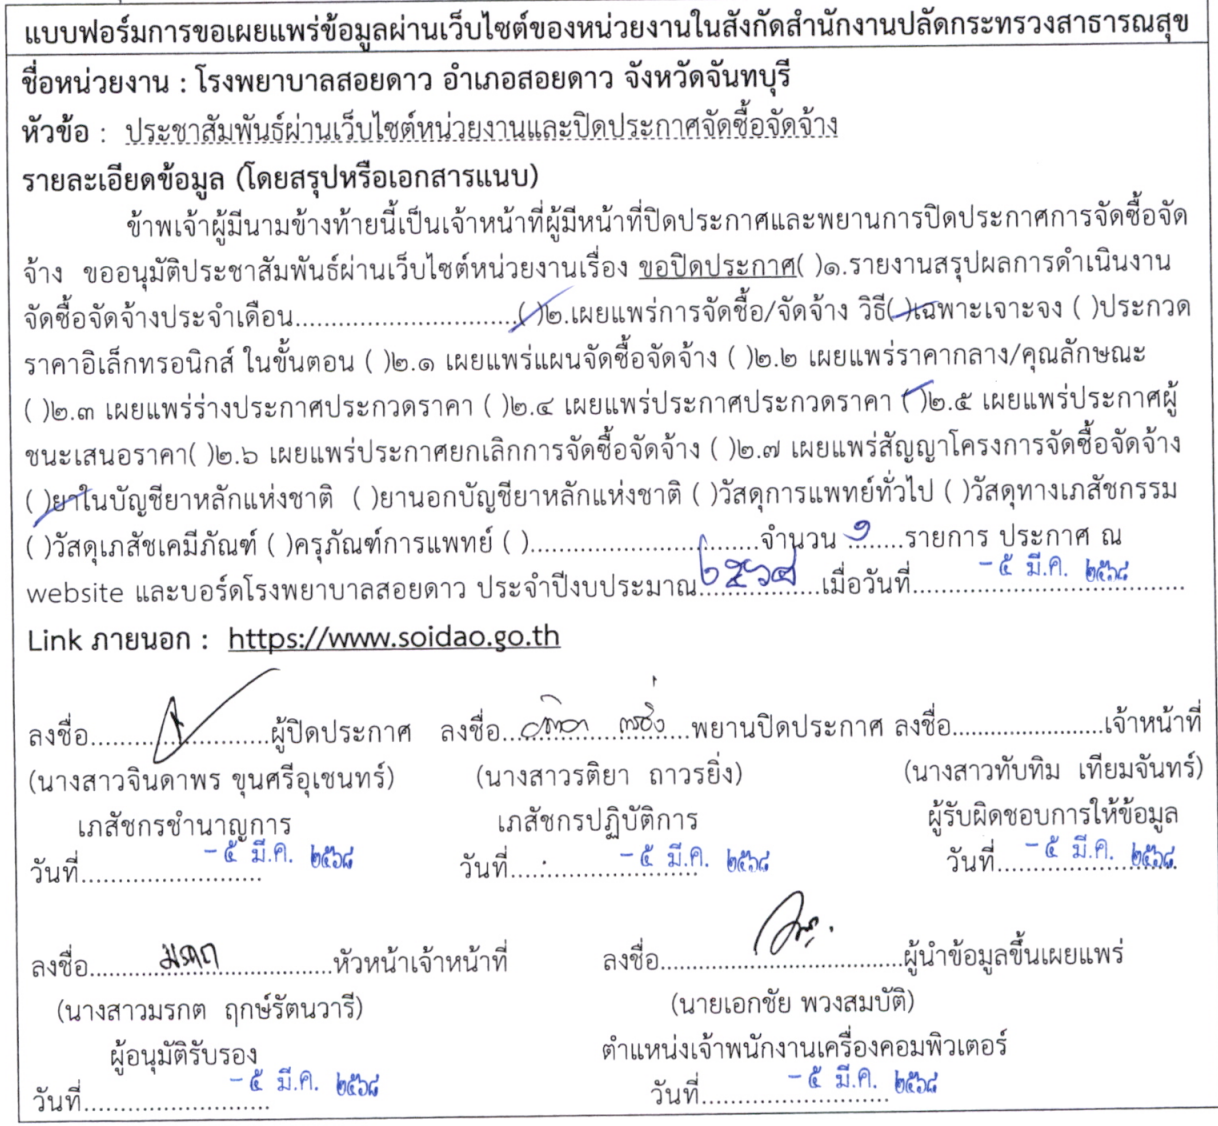 แบบฟอร์มการขอเผยแพร่ข้อมูลผ่านเว็บไซต์ของหน่วยงานในสังกัดสำนักงานปลัดกระทรวงสาธารณสุข
ชื่อหน่วยงาน : โรงพยาบาลสอยดาว อำเภอสอยดาว จังหวัดจันทบุรี
หัวข้อ : ประชาสัมพันธ์ผ่านเว็บไซต์หน่วยงานและปิดประกาศจัดซื้อจัดจ้าง
รายละเอียดข้อมูล (โดยสรุปหรือเอกสารแนบ)
ข้าพเจ้าผู้มีนามข้างท้ายนี้เป็นเจ้าหน้าที่ผู้มีหน้าที่ปิดประกาศและพยานการปิดประกาศการจัดซื้อจัด
จ้าง ขออนุมัติประชาสัมพันธ์ผ่านเว็บไซต์หน่วยงานเรื่อง ขอปิดประกาศ( )๑.รายงานสรุปผลการดำเนินงาน
จัดซื้อจัดจ้างประจำเดือน..............................(/)๒.เผยแพร่การจัดซื้อ/จัดจ้าง วิธี(/)เฉพาะเจาะจง ( )ประกวด
ราคาอิเล็กทรอนิกส์ ในขั้นตอน ( )๒.๑ เผยแพร่แผนจัดซื้อจัดจ้าง ( )๒.๒ เผยแพร่ราคากลาง/คุณลักษณะ
( )๒.๓ เผยแพร่ร่างประกาศประกวดราคา ( )๒.๔ เผยแพร่ประกาศประกวดราคา (/)๒.๕ เผยแพร่ประกาศผู้
ชนะเสนอราคา( )๒.๖ เผยแพร่ประกาศยกเลิกการจัดซื้อจัดจ้าง ( )๒.๗ เผยแพร่สัญญาโครงการจัดซื้อจัดจ้าง
(/)ยาในบัญชียาหลักแห่งชาติ ( )ยานอกบัญชียาหลักแห่งชาติ ( )วัสดุการแพทย์ทั่วไป ( )วัสดุทางเภสัชกรรม
( )วัสดุเภสัชเคมีภัณฑ์ ( )ครุภัณฑ์การแพทย์ ( )..............................จำนวน ๑........รายการ ประกาศ ณ
website และบอร์ดโรงพยาบาลสอยดาว ประจำปีงบประมาณ ๒๕๖๘ เมื่อวันที่ - ๕ มี.ค. ๒๕๖๘
Link ภายนอก : https://www.soidao.go.th
ลงชื่อ........................ผู้ปิดประกาศ ลงชื่อ........................พยานปิดประกาศ ลงชื่อ........................เจ้าหน้าที่
(นางสาวจินดาพร ขุนศรีอุเชนทร์) (นางสาวรติยา ถาวรยิ่ง) (นางสาวทับทิม เทียมจันทร์)
เภสัชกรชำนาญการ เภสัชกรปฏิบัติการ ผู้รับผิดชอบการให้ข้อมูล
วันที่ - ๕ มี.ค. ๒๕๖๘ วันที่ - ๕ มี.ค. ๒๕๖๘ วันที่ - ๕ มี.ค. ๒๕๖๘
ลงชื่อ มรกต หัวหน้าเจ้าหน้าที่ ลงชื่อ................................ผู้นำข้อมูลขึ้นเผยแพร่
(นางสาวมรกต ฤกษ์รัตนวารี) (นายเอกชัย พวงสมบัติ)
ผู้อนุมัติรับรอง ตำแหน่งเจ้าพนักงานเครื่องคอมพิวเตอร์
วันที่ - ๕ มี.ค. ๒๕๖๘ วันที่ - ๕ มี.ค. ๒๕๖๘